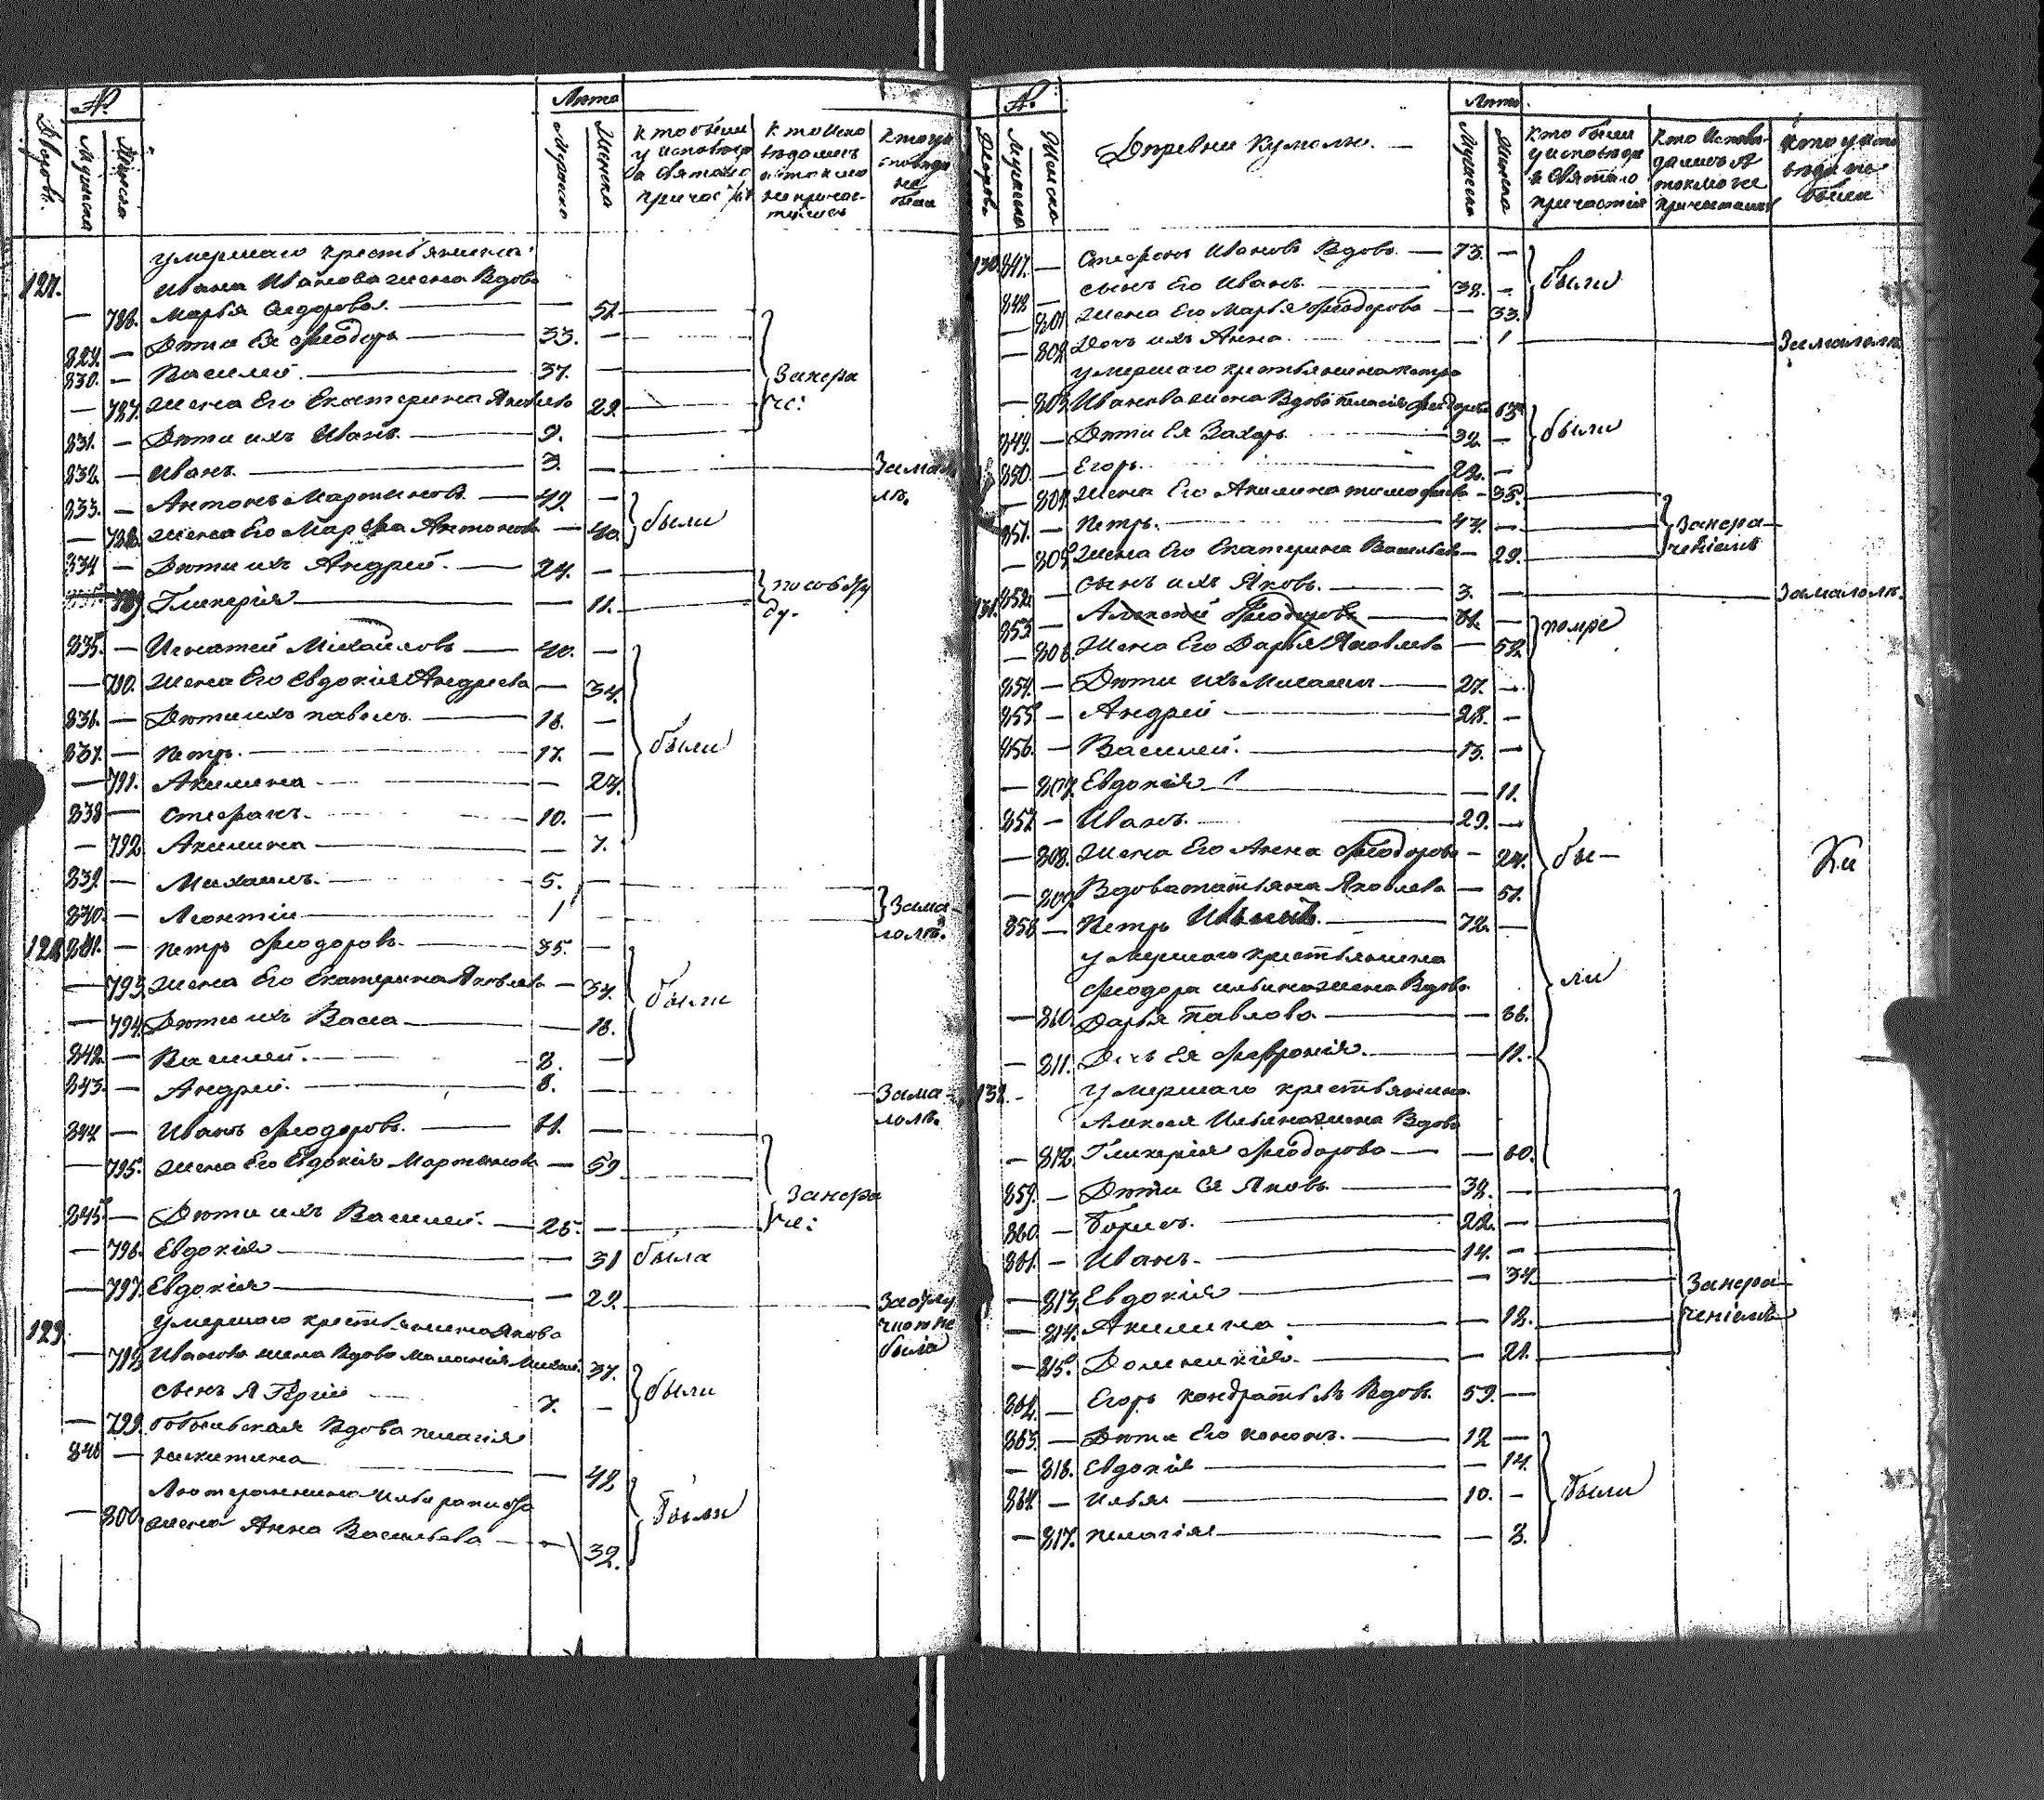 №
Лѣта
Дворовъ.
Мужеска
Женска
Мужеска
Женска
кто были у исповѣди и святаго причастія
кто исповѣдались а токмо не причастились
кто у исповѣди не были
127.
умершаго крестьянина
Ивана Иванова жена вдова
— 786. Марья Сидорова — 51.
829. — Дѣти Ея Ѳеодоръ 33. —
830. — Василей. 37. —
Занера
че:
— 787. жена Его Екатерина Яковлева 29.
831. — Дѣти ихъ Иванъ. 9. —
832. — Иванъ 3. —
833. — Антонъ Мартиновъ 49. —
были
— 788. жена Его Марфа Антонова — 40
834 — Дѣти ихъ Андрей. 24. —
789. Гликерія — 11.
835. — Игнатей Михайловъ 40. —
— 790. жена Его Евдокія Андреева — 34.
836. — Дѣти ихъ Павелъ. 18. —
837. — Петръ. 17. —
были
— 791. Акилина — 24.
838 — Стефанъ. 10. —
— 792 Акилина — 7.
839. — Михаилъ. 5. —
840. — Леонтій 1 —
128 841. — Петръ Ѳеодоровъ. 35. —
— 793 жена Его Екатерина Яковлева — 34.
были
— 794. Дѣти ихъ Васса — 18.
842. — Василей. 8. —
843. — Андрей. 8. —
844 — Иванъ Ѳеодоровъ. 61. —
— 795. жена Его Евдокія Мартынова — 59
Занера
че:
845 — Дѣти ихъ Василей. 25. —
— 796. Евдокія — 31 была
— 797. Евдокія — 29.
129
умершаго крестьянина Якова
— 798 Иванова жена вдова Маланія 37.
были
сынъ Я 7. —
— 799. бобыльская вдова Пелагія
846 — Никитина — 48
— 800 жена Анна Васильева — 32.
были
№
Деревни Кумолы. —
Лѣта
Дворовъ.
Мужеска
Женска
Мужеска
Женска
кто были у исповѣди и святаго причастія
кто исповѣдались а токмо не причастились
кто у исповѣди не были
130 847. — Стефанъ Ивановъ вдовъ. 73. —
848 — сынъ Его Иванъ. 38. —
были
— 801 жена Его Марья Ѳеодорова — 33.
— 802 Дочь ихъ Анна — 1
За малолѣ.
умершаго крестьянина Петра
— 803. Иванова жена вдова Пелагія Ѳеодорова 63
849. — Дѣти Ея Захаръ. 32. —
были
850. — Егоръ. 22. —
— 804. жена Его Акилина Тимофеева — 35.
851. — Петръ. 47. —
Занера—
ченіемъ
— 805 жена Его Екатерина Васильева — 29.
852. — сынъ ихъ Яковъ. 3. —
За малолѣ.
131. 853 — Алексей Ѳеодоровъ 61. —
помре
— 806. жена Его Дарья Яковлева — 52.
854. — Дѣти ихъ Михаилъ 27. —
855 — Андрей 28. —
856. — Василей. 13. —
— 807. Евдокія — 11.
857 — Иванъ. 29. —
— 808. жена Его Анна Ѳеодорова — 24.
бы—
— 809 Вдова Татьяна Яковлева — 51.
858 — Петръ Ильинъ. 72. —
умершаго крестьянина
Ѳеодора Ильина жена вдова
ли
— 810. Дарья Павлова — 36.
— 811. Дочь Ея Ѳефронія. — 11.
132. умершаго крестьянина
Алексея Ильина жена вдова
— 812. Гликерія Ѳеодорова — 60.
859. — Дѣти Ея Яковъ. 38. —
860. — Борисъ. 22. —
861. — Иванъ. 14. —
— 813. Евдокія — 34
Занера—
ченіемъ
— 814. Акилина — 12.
— 815. Доминикія. — 21.
862. — Егоръ Кондратьевъ вдовъ. 59. —
863. — Дѣти Его Кононъ. 12 —
— 816. Евдокія — 14.
864 — Илья 10. —
были
— 817. Пелагія — 8.